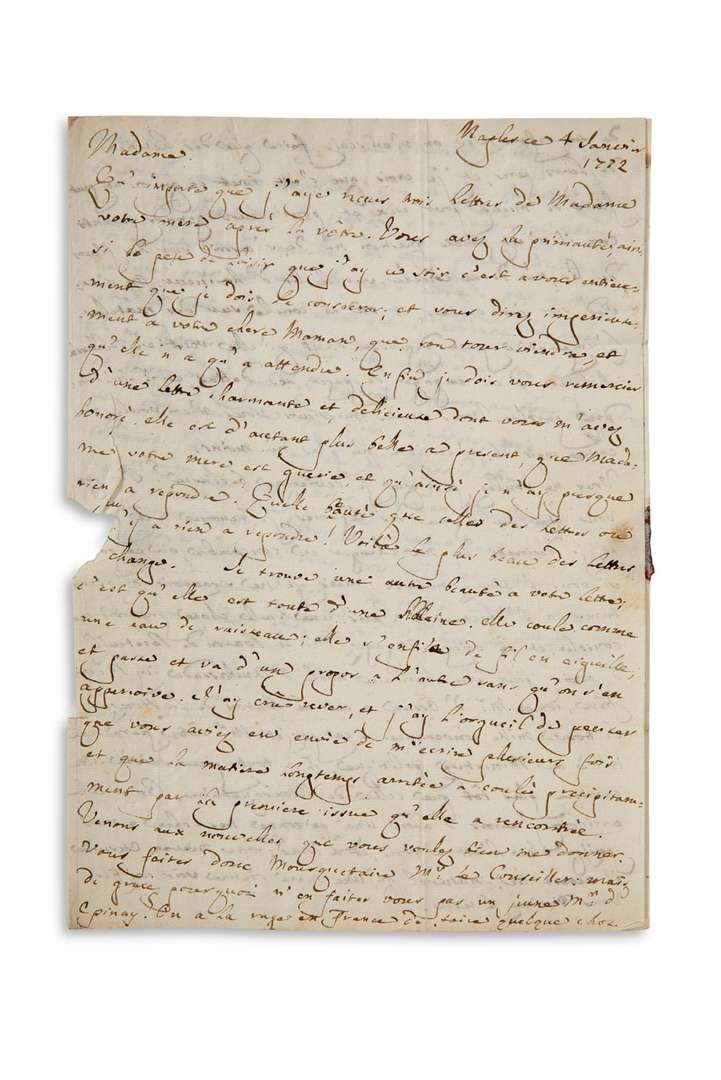 Naples ce 4 Janvier
1772
Madame.
Qu'importe que j'aye recus trois lettres de Madame
votre mere apres la vôtre. Vous avez la primauté; ain-
si le peu de loisir que j'ay ce soir c'est a vous entiere-
ment que je dois le consacrer; et vous direz ingenieuse-
ment a votre chere Maman, que son tour viendra, et
qu'elle n'a qu'a attendre. Enfin je dois vous remercier
d'une lettre charmante et delicieuse dont vous m'avez
honoré. elle est d'autant plus belle a present, que Mada-
me votre mere est guerie et qu'ainsi je n'ay presque
rien a repondre. Quelle beauté que celle des lettres ou
il n'y a rien a repondre! Voilà le plus beau des lettres
change. Je trouve une autre beauté a votre lettre;
c'est qu'elle est toute d'une haleine. elle coule comme
une eau de ruisseau; elle s'enfile de fil en eiguille;
et passe et va d'un propos a l'autre sans qu'on s'en
apperçoive. J'ay cru rever, et j'ay l'orgueil de penser
que vous aviez eu envie de m'ecrire plusieurs fois
et que la matiere longtemps arretée a coulé precipitam-
ment par la premiere issue qu'elle a rencontrée.
Venons aux nouvelles que vous voulez bien me donner.
Vous faites donc Mousquetaire Mr. le Conseiller: mais
de grace pourquoi n'en faites vous pas un jeune Mr. d'
Epinay. On a la rage en France de faire quelque chose